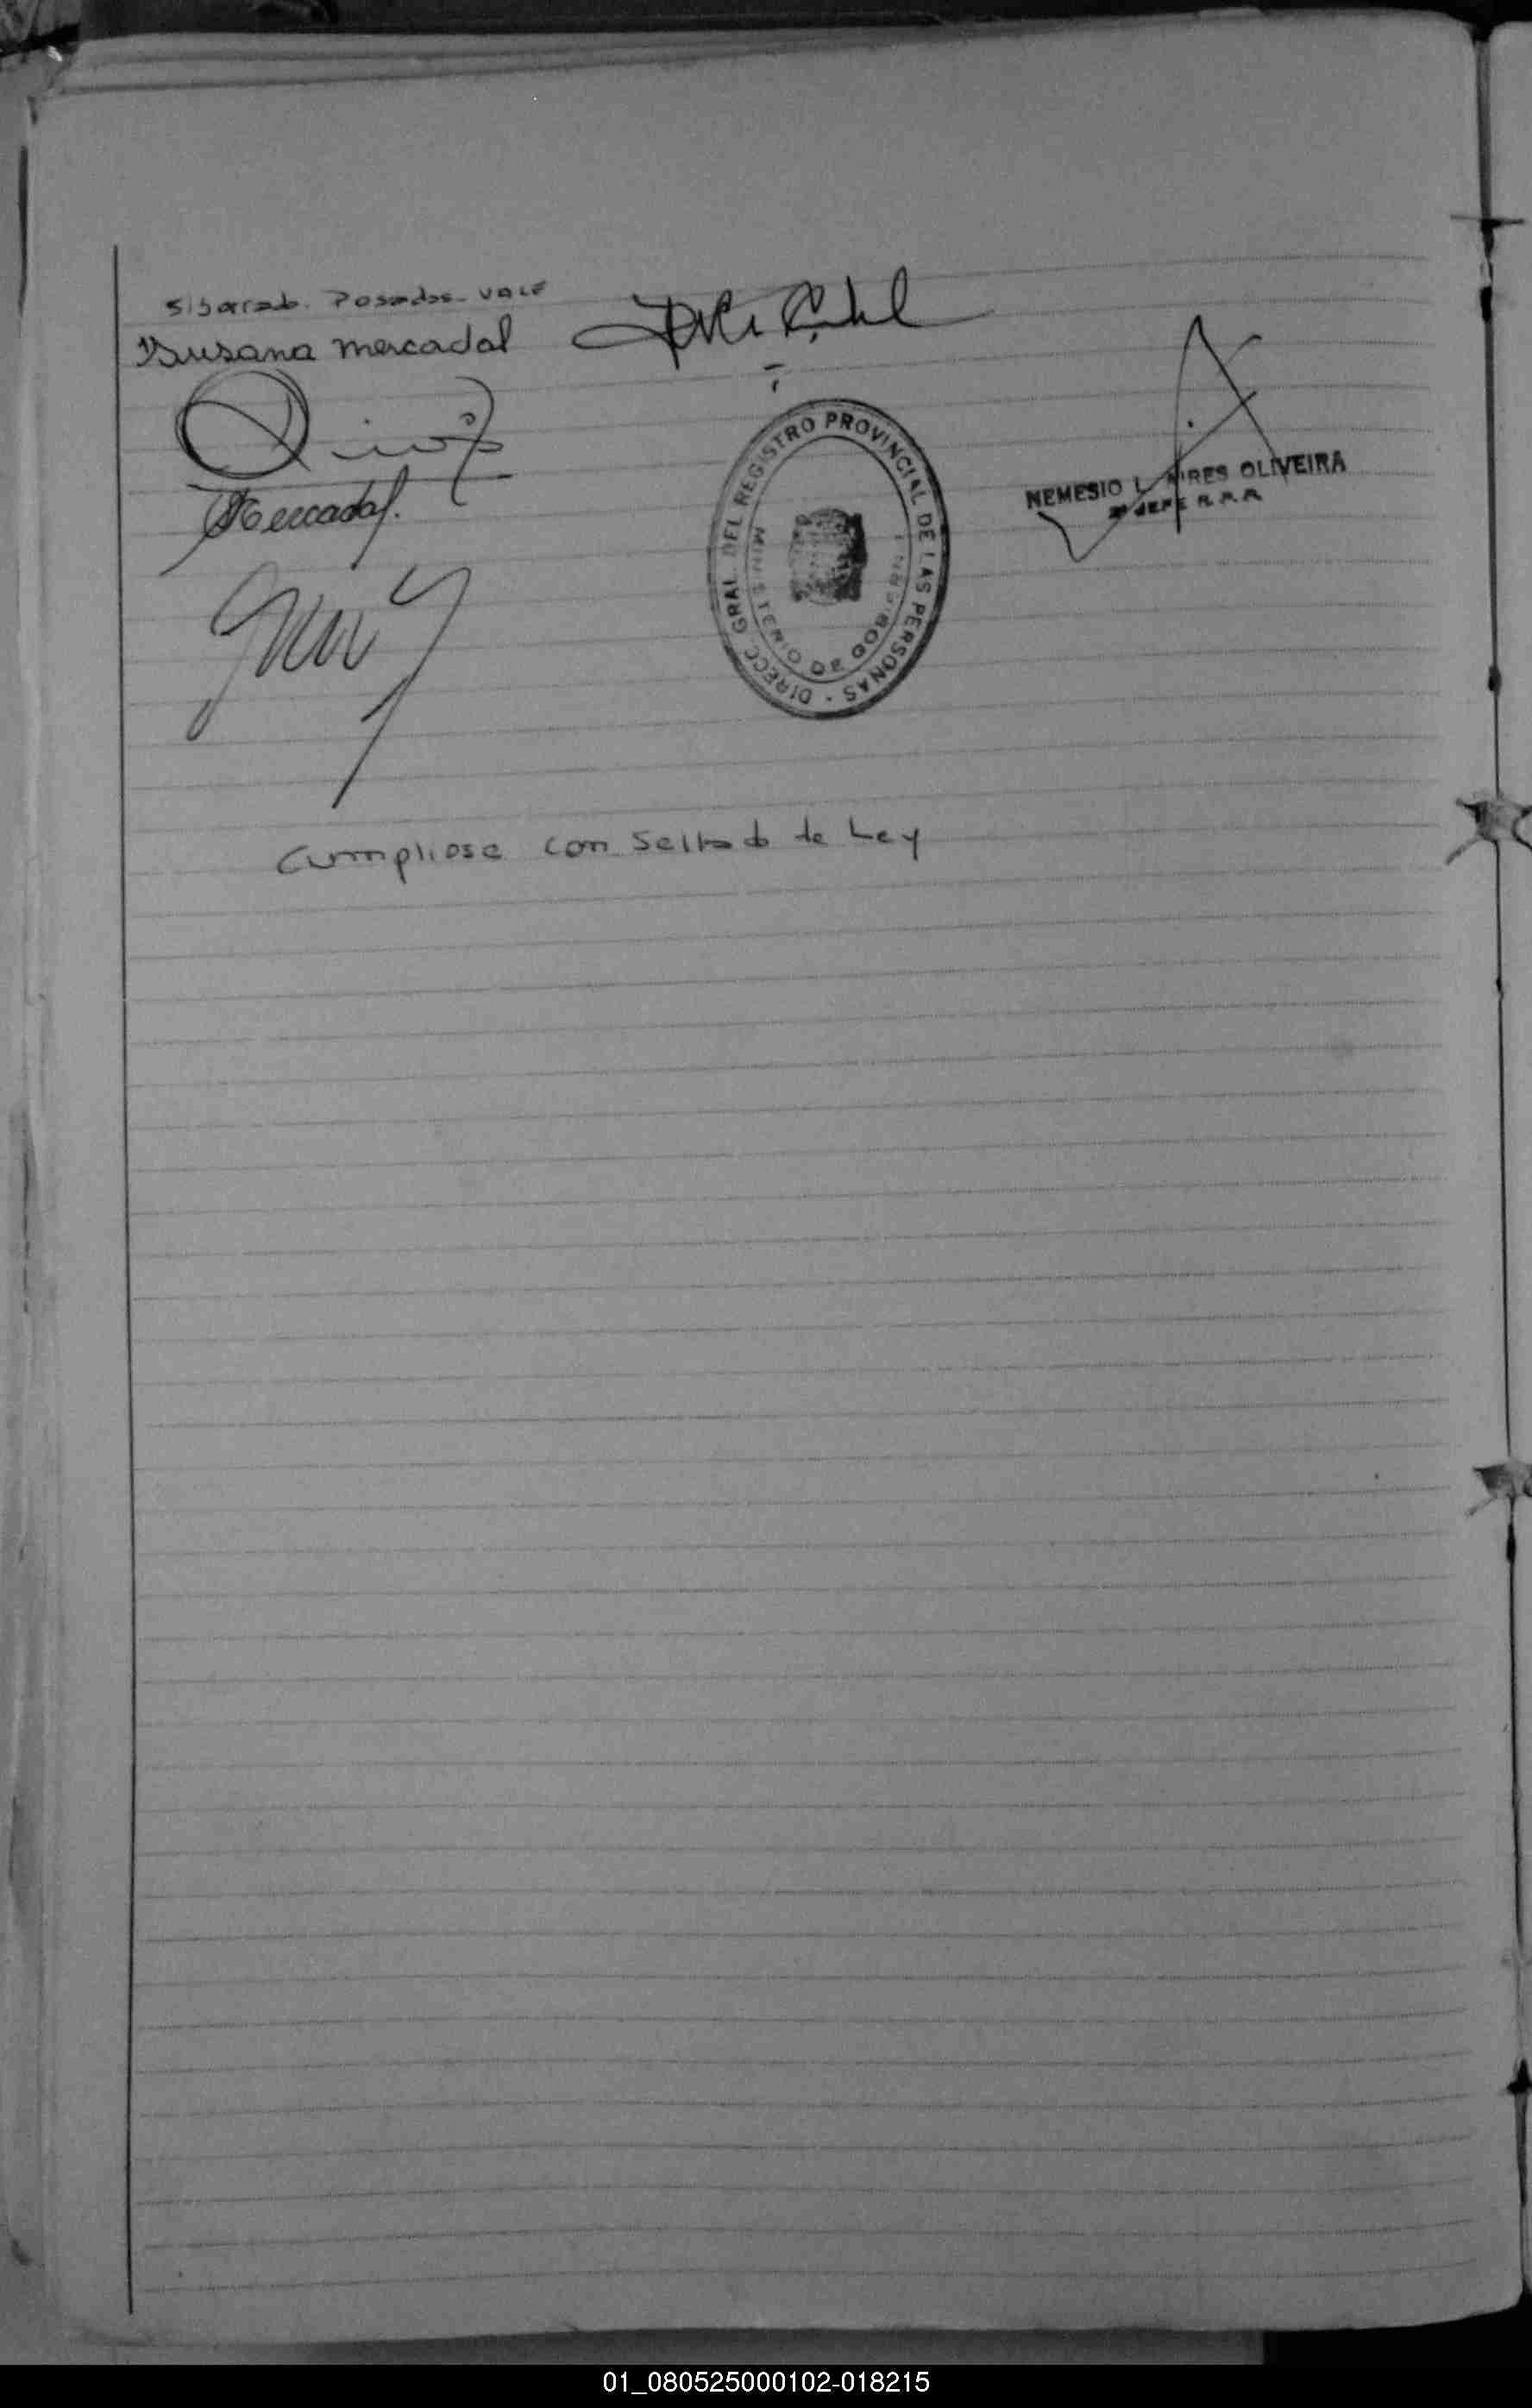 S/borrab. Posadas - Vale
Susana mercadal
Mercadal.
DIRECC GRAL. DEL REGISTRO PROVINCIAL DE LAS PERSONAS -
MINISTERIO DE GOBIERNO
NEMESIO L. AIRES OLIVEIRA
JEFE R.P.P.
Cumpliose con Sellado de Ley
01_080525000102-018215